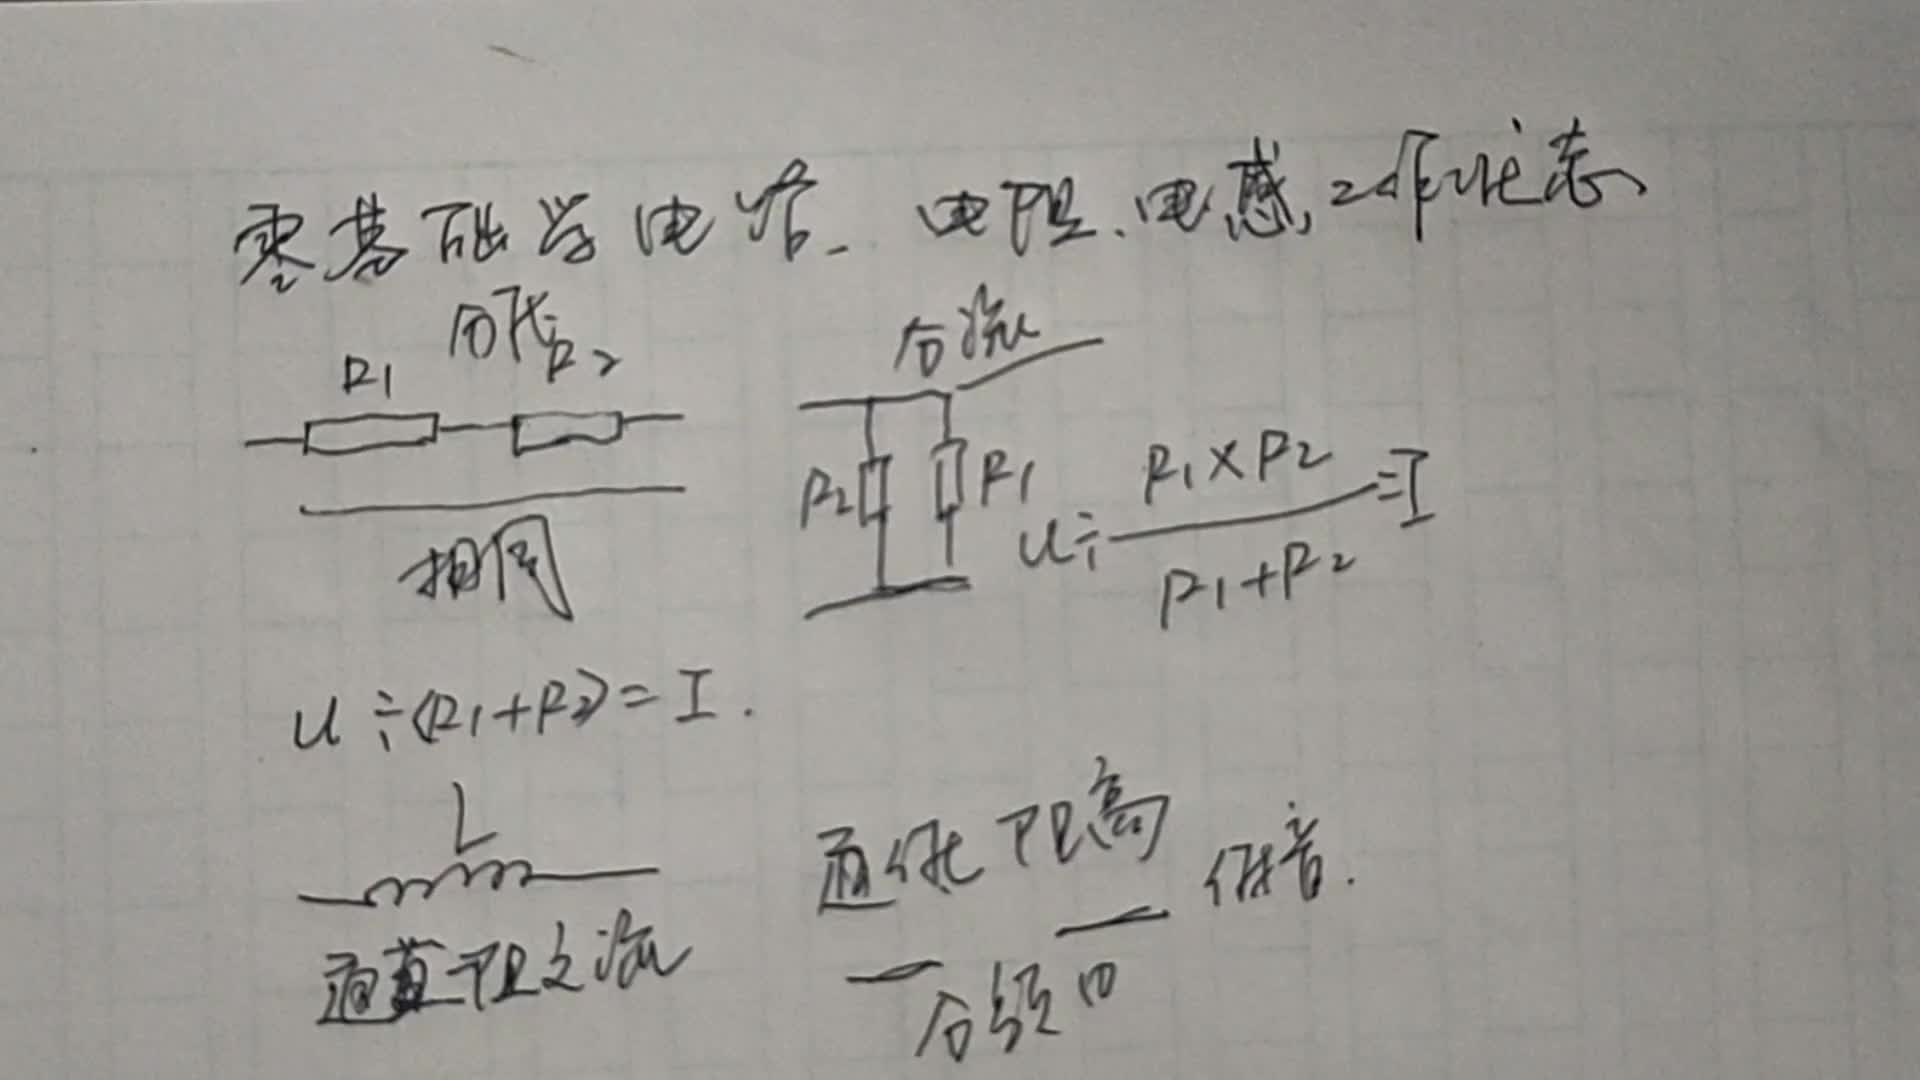 零基础学电路. 电阻、电感,工作状态、
分压
R1 R2
相同
U÷(R1+R2)=I.
分流
R2 R1
U÷ R1×R2 =I
R1+R2
L
通直阻交流
通低阻高 低音.
分频